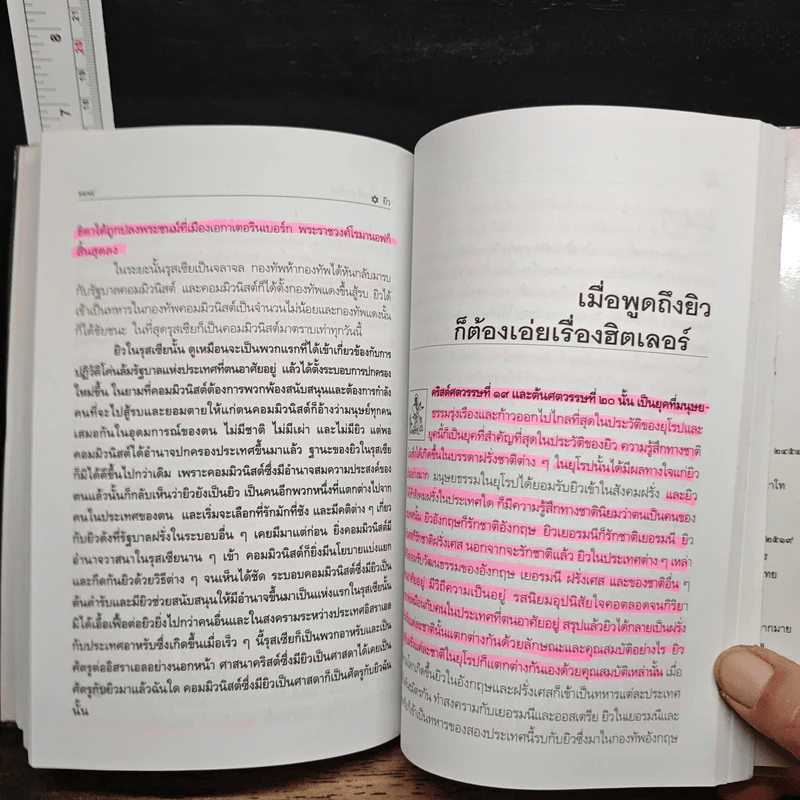 7
8
19
20
21
✡ ยิว
ธิดาได้ถูกปลงพระชนม์ที่เมืองเอกาเตอรินเบอร์ก พระราชวงศ์โรมานอฟก็
สิ้นสุดลง
ในระยะนั้นรุสเซียเป็นจลาจล กองทัพห้ากองทัพได้หันกลับมารบ
กับรัฐบาลคอมมิวนิสต์ และคอมมิวนิสต์ก็ได้ตั้งกองทัพแดงขึ้นสู้รบ ยิวได้
เข้าเป็นทหารในกองทัพคอมมิวนิสต์เป็นจำนวนไม่น้อยและกองทัพแดงนั้น
ก็ได้ชัยชนะ ในที่สุดรุสเซียก็เป็นคอมมิวนิสต์มาตราบเท่าทุกวันนี้
ยิวในรุสเซียนั้น ดูเหมือนจะเป็นพวกแรกที่ได้เข้าเกี่ยวข้องกับการ
ปฏิวัติโค่นล้มรัฐบาลแห่งประเทศที่ตนอาศัยอยู่ แล้วได้ตั้งระบอบการปกครอง
ใหม่ขึ้น ในยามที่คอมมิวนิสต์ต้องการพวกพ้องสนับสนุนและต้องการกำลัง
คนที่จะไปสู้รบและยอมตายให้แก่ตนคอมมิวนิสต์ก็อ้างว่ามนุษย์ทุกคน
เสมอกันในอุดมการณ์ของตน ไม่มีชาติ ไม่มีเผ่า และไม่มียิว แต่พอ
คอมมิวนิสต์ได้อำนาจปกครองประเทศขึ้นมาแล้ว ฐานะของยิวในรุสเซีย
ก็มิได้ดีขึ้นไปกว่าเดิม เพราะคอมมิวนิสต์ซึ่งมีอำนาจสมความประสงค์ของ
ตนแล้วนั้นก็กลับเห็นว่ายิวยังเป็นยิว เป็นคนอีกพวกหนึ่งที่แตกต่างไปจาก
คนในประเทศของตน และเริ่มจะเลือกที่รักมักที่ชัง และมีคติต่าง ๆ เกี่ยว
กับยิวดังที่รัฐบาลฝรั่งในระบอบอื่น ๆ เคยมีมาแต่ก่อน ยิ่งคอมมิวนิสต์มี
อำนาจวาสนาในรุสเซียนาน ๆ เข้า คอมมิวนิสต์ก็ยิ่งมีนโยบายแบ่งแยก
และกีดกันยิวด้วยวิธีต่าง ๆ จนเห็นได้ชัด ระบอบคอมมิวนิสต์ซึ่งมียิวเป็น
ต้นตำรับและมียิวช่วยสนับสนุนให้มีอำนาจขึ้นมาเป็นแห่งแรกในรุสเซียนั้น
มิได้เอื้อเฟื้อต่อยิวยิ่งไปกว่าคนอื่นและในสงครามระหว่างประเทศอิสราเอล
กับประเทศอาหรับซึ่งเกิดขึ้นเมื่อเร็ว ๆ นี้รุสเซียก็เป็นพวกอาหรับและเป็น
ศัตรูต่ออิสราเอลอย่างนอกหน้า ศาสนาคริสต์ซึ่งมียิวเป็นศาสดาได้เคยเป็น
ศัตรูกับยิวมาแล้วฉันใด คอมมิวนิสต์ซึ่งมียิวเป็นศาสดาก็เป็นศัตรูกับยิวฉัน
นั้น
เมื่อพูดถึงยิว
ก็ต้องเอ่ยเรื่องฮิตเลอร์
คริสต์ศตวรรษที่ ๑๙ และต้นศตวรรษที่ ๒๐ นั้น เป็นยุคที่มนุษย-
ธรรมรุ่งเรืองและก้าวออกไปไกลที่สุดในประวัติของยุโรปและ
ยุคนี้ก็เป็นยุคที่สำคัญที่สุดในประวัติของยิว ความรู้สึกทางชาติ
ได้เกิดขึ้นในบรรดาฝรั่งชาติต่าง ๆ ในยุโรปนั้นได้มีผลทางใจแก่ยิว
มาก มนุษยธรรมในยุโรปได้ยอมรับยิวเข้าในสังคมฝรั่ง และยิว
สังคมฝรั่งในประเทศใด ก็มีความรู้สึกทางชาตินิยมว่าตนเป็นคนของ
นั้น ยิวอังกฤษก็รักชาติอังกฤษ ยิวเยอรมนีก็รักชาติเยอรมนี ยิว
รักชาติฝรั่งเศส นอกจากจะรักชาติแล้ว ยิวในประเทศต่าง ๆ เหล่า
รับวัฒนธรรมของอังกฤษ เยอรมนี ฝรั่งเศส และของชาติอื่น ๆ
อยู่ มีวิถีความเป็นอยู่ รสนิยมอุปนิสัยใจคอตลอดจนกิริยา
เหมือนกับคนในประเทศที่ตนอาศัยอยู่ สรุปแล้วยิวได้กลายเป็นฝรั่ง
แต่ละชาตินั้นแตกต่างกันด้วยลักษณะและคุณสมบัติอย่างไร ยิว
แต่ละชาติในยุโรปก็แตกต่างกันเองด้วยคุณสมบัติเหล่านั้น เมื่อ
เกิดขึ้นยิวในอังกฤษและฝรั่งเศสก็เข้าเป็นทหารแต่ละประเทศ
มิตรกัน ทำสงครามกับเยอรมนีและออสเตรีย ยิวในเยอรมนีและ
เป็นทหารของสองประเทศนี้รบกับยิวซึ่งมาในกองทัพอังกฤษ
๒๕๑๙